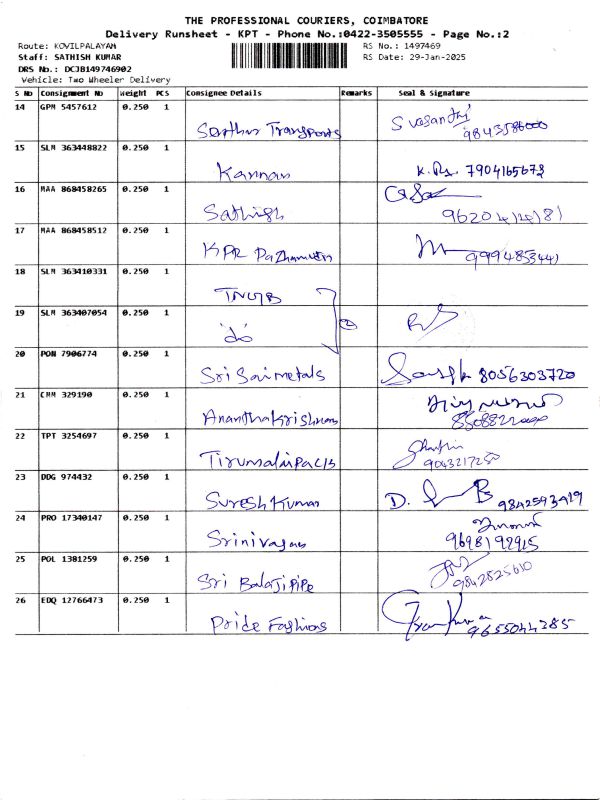 THE PROFESSIONAL COURIERS, COIMBATORE
Delivery Runsheet - KPT - Phone No.:0422-3505555 - Page No.:2
Route: KOVILPALAYAM RS No.: 1497469
Staff: SATHISH KUMAR RS Date: 29-Jan-2025
DRS No.: DCJB149746902
Vehicle: Two Wheeler Delivery
S No Consignment No Weight PCS Consignee Details Remarks Seal & Signature
14 GPM 5457612 0.250 1
Transports
15 SLM 363448822 0.250 1
Kannan 7904165673
16 MAA 868458265 0.250 1
Sathish
17 MAA 868458512 0.250 1
KPR 9994853441
18 SLM 363410331 0.250 1
TNGB
19 SLM 363407054 0.250 1
do
20 PON 7906774 0.250 1
Sri Sai metals 8056303720
21 0.250 1
Ananthakrishnan
22 TPT 3254697 0.250 1
23 DDG 974432 0.250 1
Suresh Kumar D.
24 PRO 17340147 0.250 1
Srinivasan
25 POL 1381259 0.250 1
Sri Balaji Pipe 9842825610
26 EDQ 12766473 0.250 1
Pride Fashions 9655044285